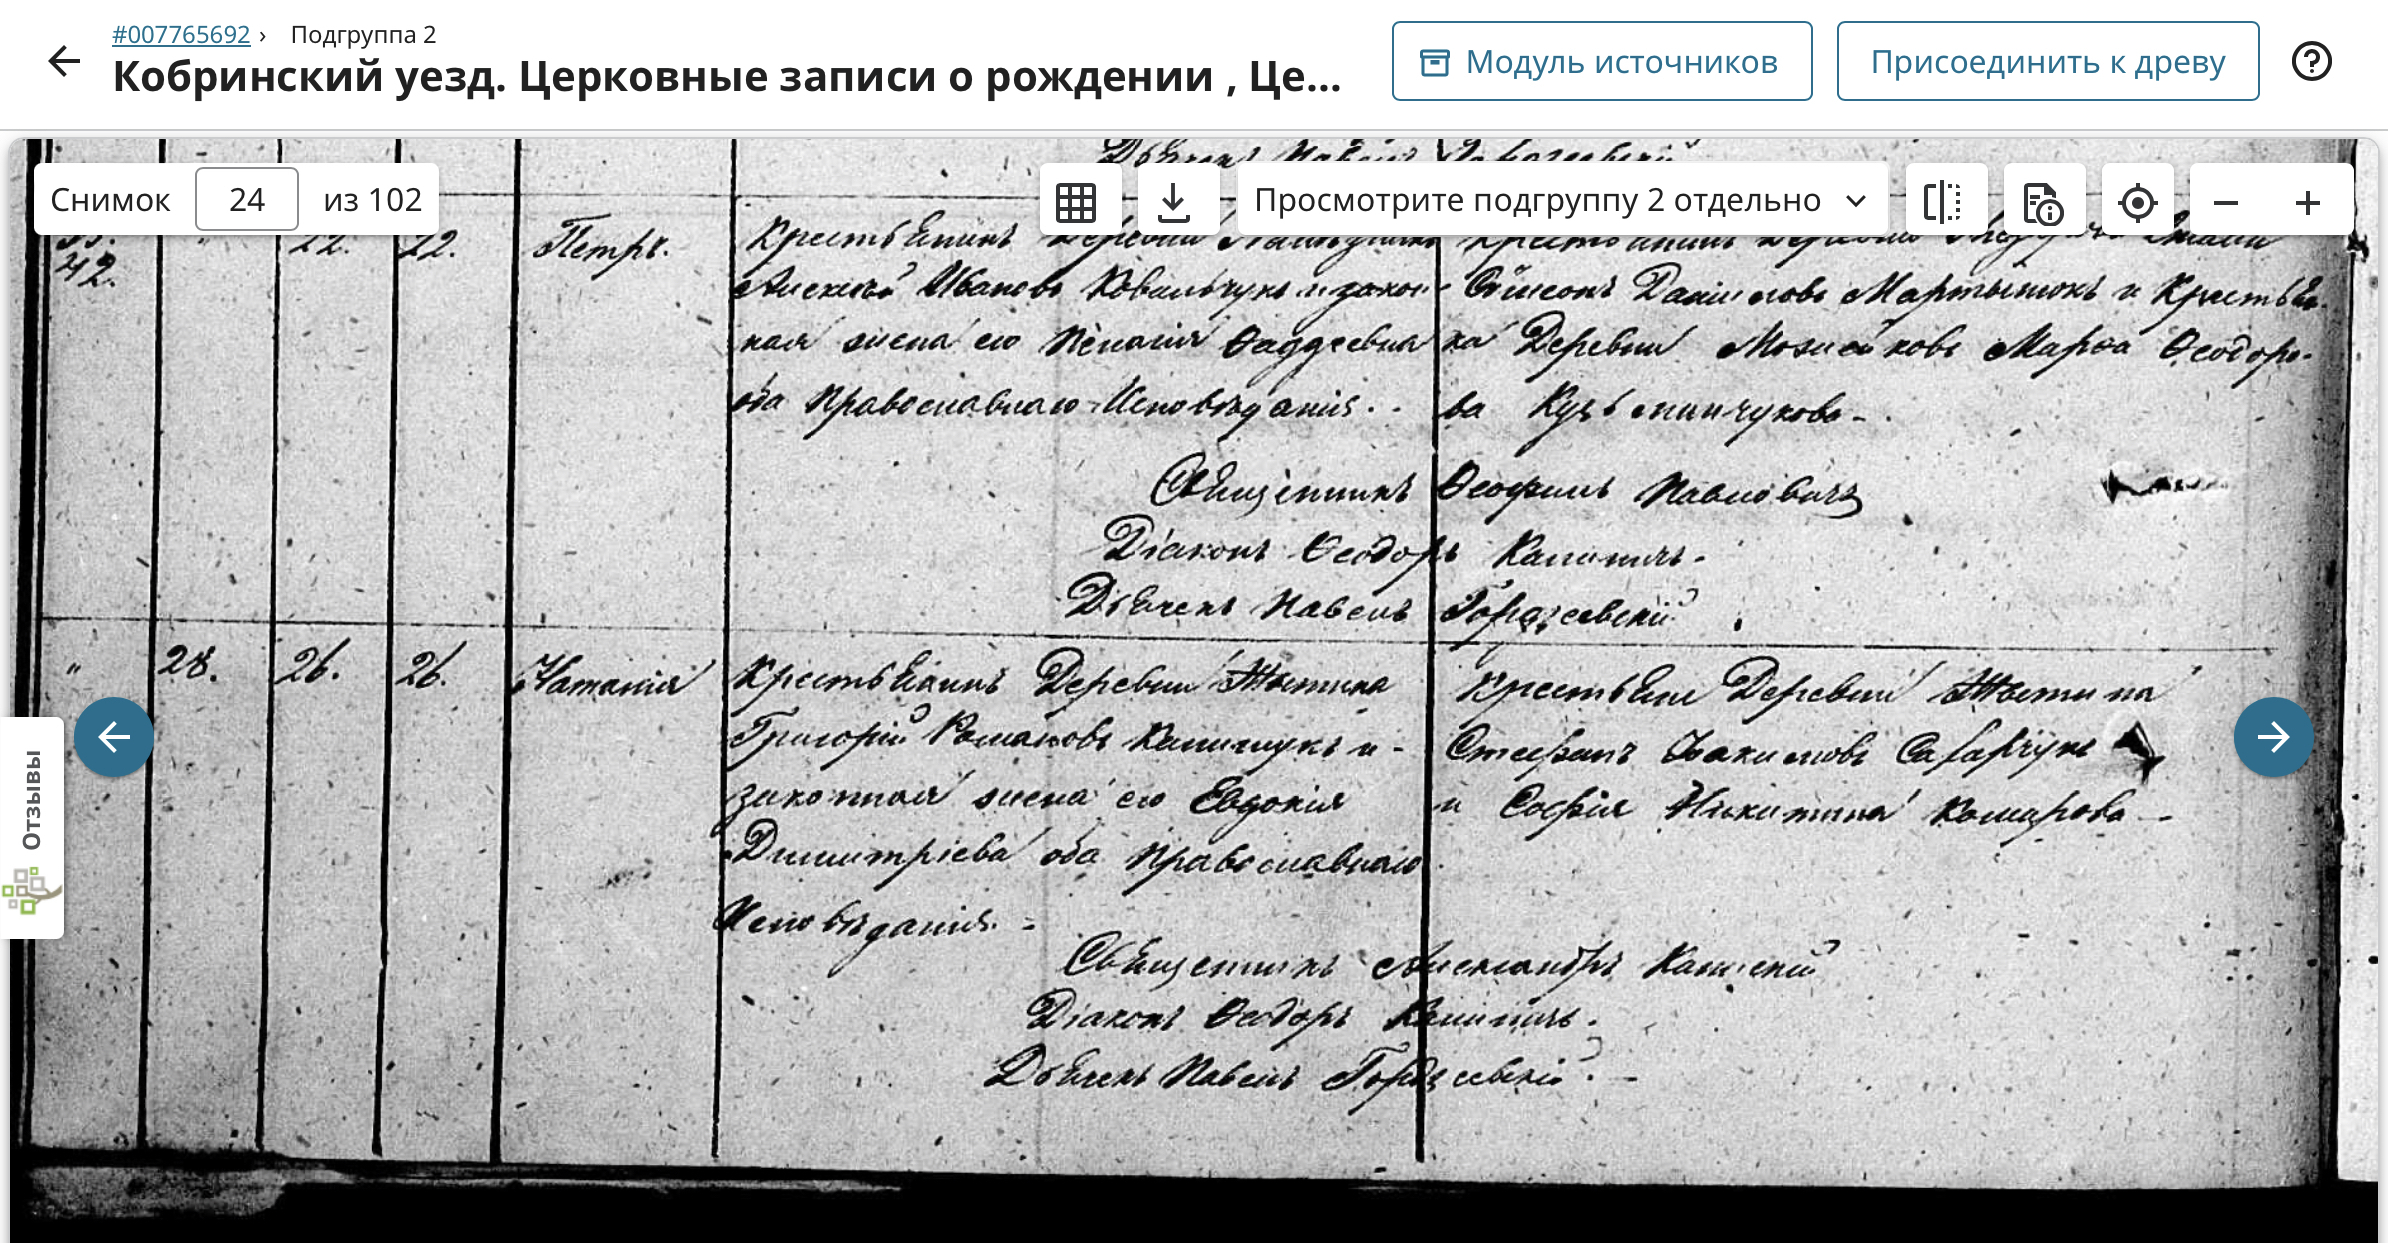 #007765692 › Подгруппа 2
Кобринский уезд. Церковные записи о рождении , Це...
Модуль источников
Присоединить к древу
Снимок 24 из 102
Просмотрите подгруппу 2 отдельно
Отзывы
Дьячекъ Павелъ
42. 22. 22. Петръ. Крестьянинъ Деревни
Алексѣй Ивановъ Ковальчукъ и закон-
ная жена его Пелагія Ѳаддеевна
оба Православнаго Исповѣданія.
Симеонъ Данииловъ Мартынюкъ и Крестьян-
ка Деревни Мозейковъ Марѳа Ѳеодоро-
ва Кузьминчукова.
Священникъ Ѳеофилъ Павловичъ
Діаконъ Ѳеодоръ Калиничъ.
Дьячекъ Павелъ Горбачевскій
" 28. 26. 26. Наталія Крестьянинъ Деревни
Григорій Романовъ Калишукъ и
законная жена его Евдокія
Димитріева оба Православнаго
Исповѣданія.
Крестьяне Деревни
Стефанъ Іоакимовъ Сафарчукъ
и Софія Никитина Комарова
Священникъ Александръ
Діаконъ Ѳеодоръ Калиничъ.
Дьячекъ Павелъ